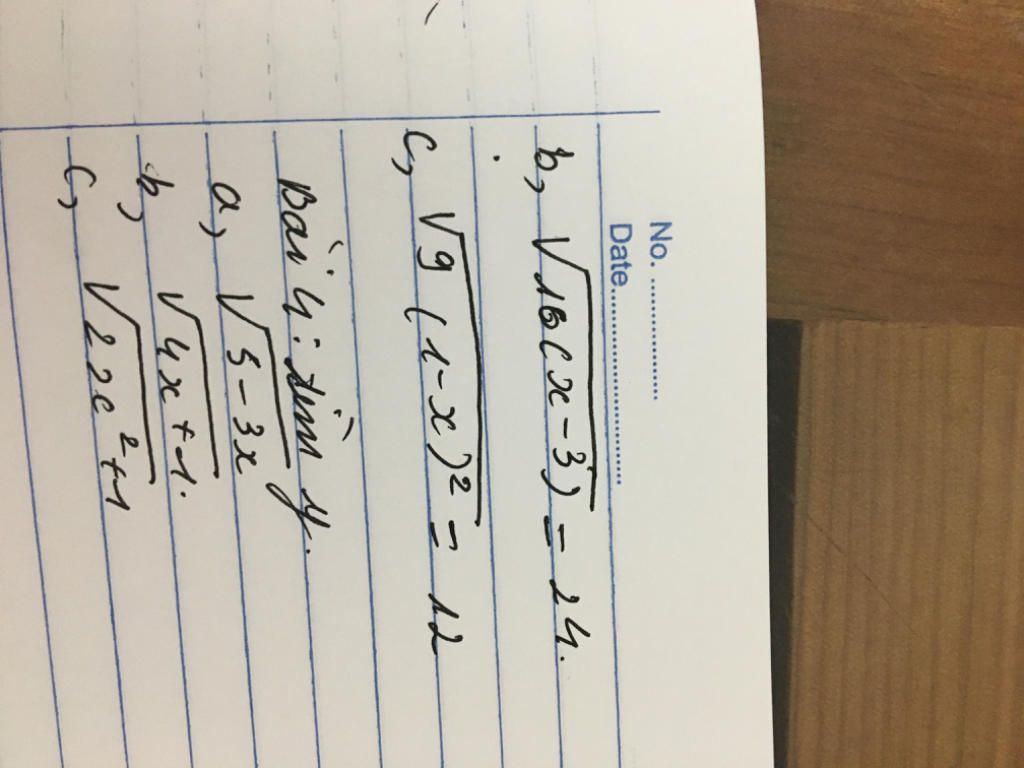 No. ..................
Date..............................
b, √16(x-3) = 24.
c, √9(1-x)² = 12
Bài 4: tìm y.
a, √5-3x
b, √4x+1.
c, √2x²+1